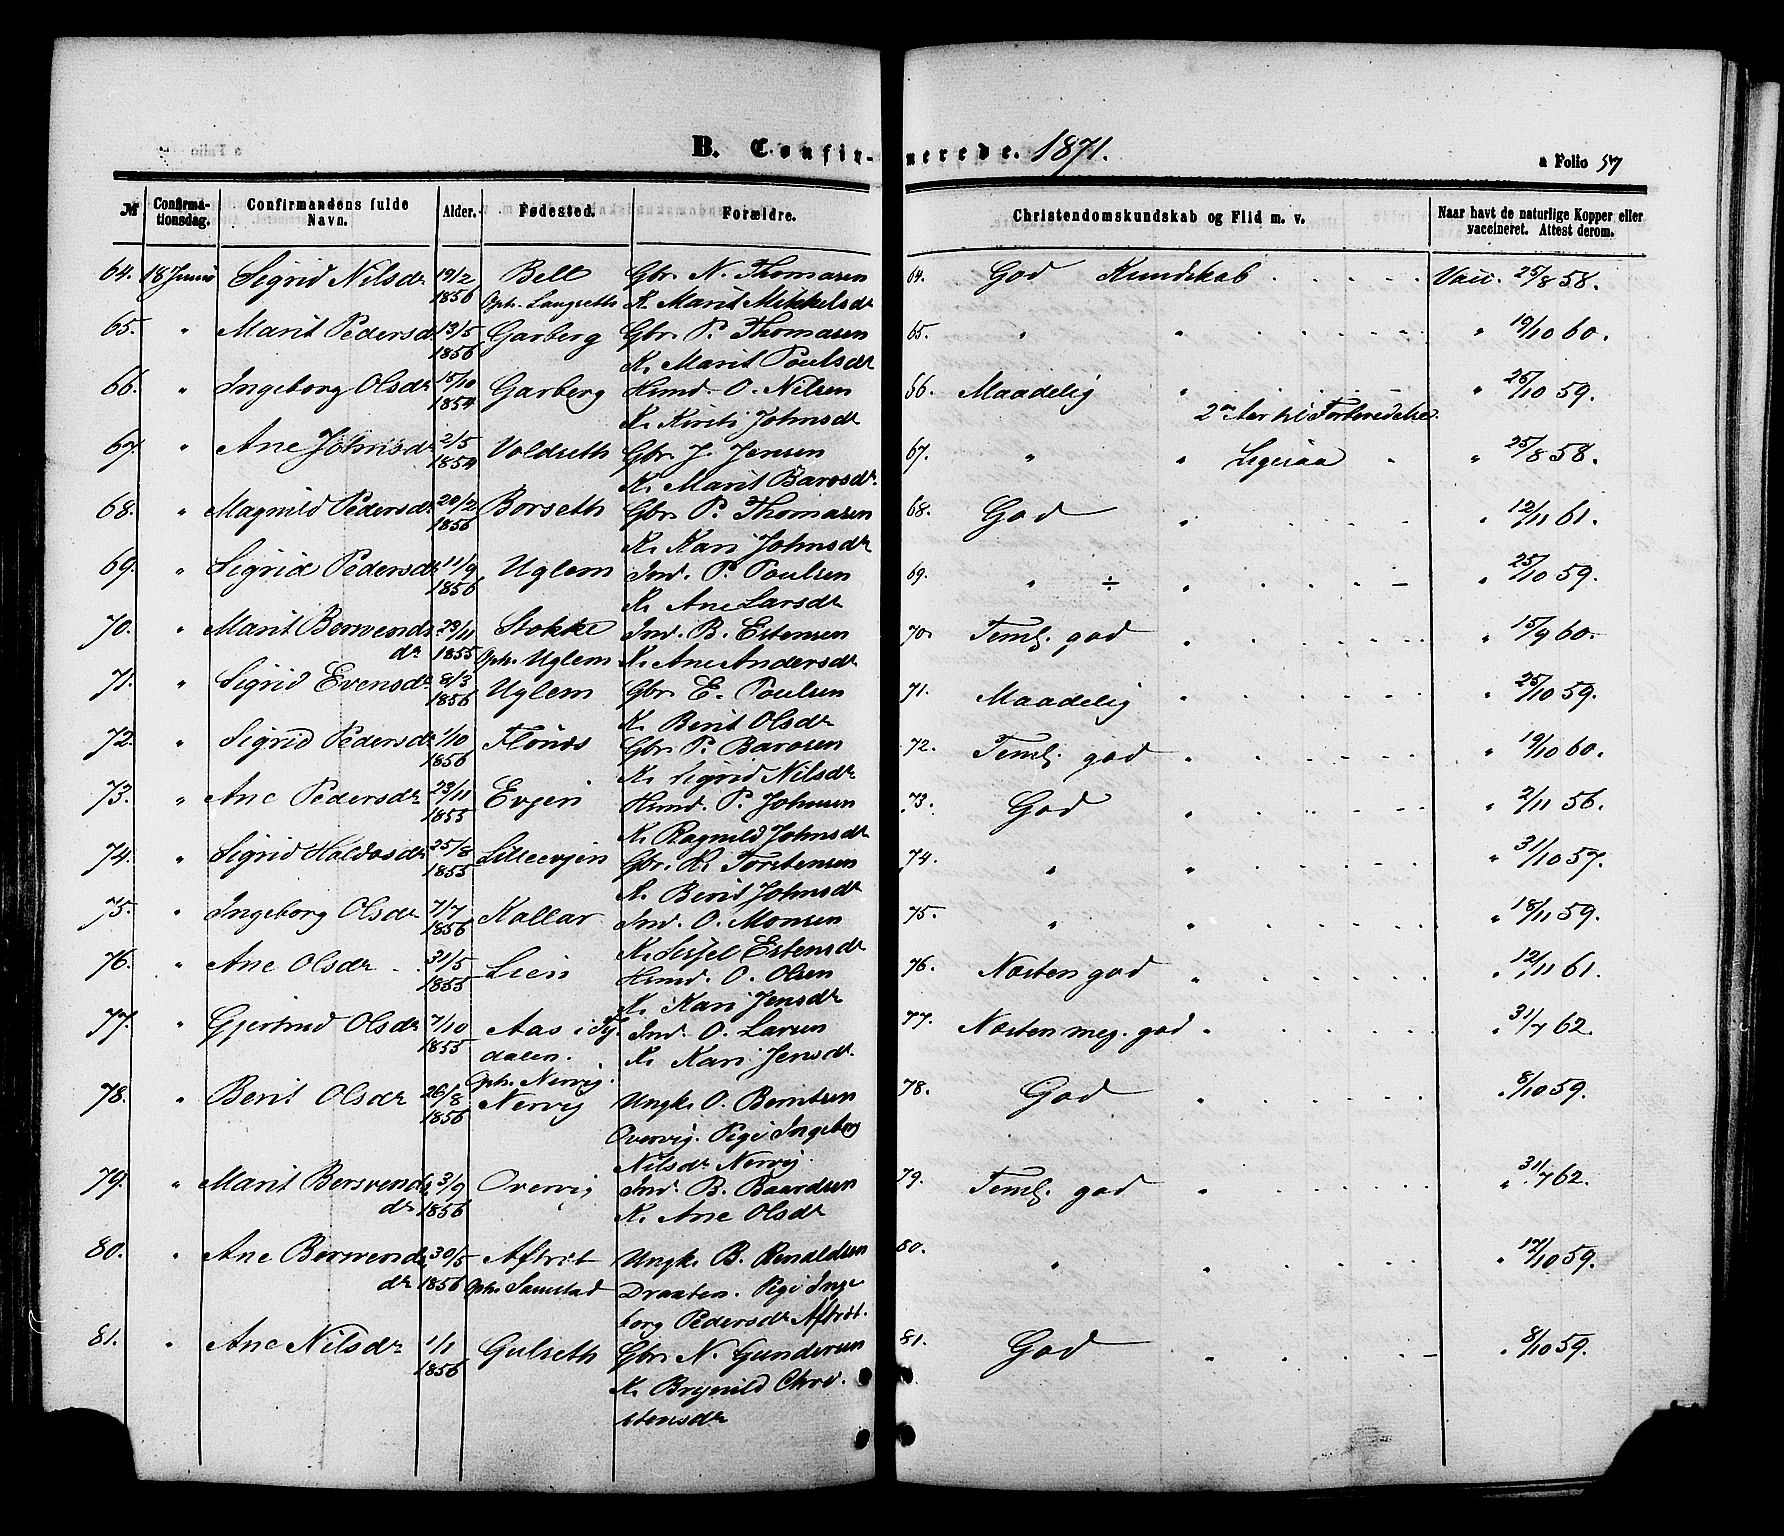 B. Confirmerede. 1871.
a Folio 57
№ Confirmationsdag. Confirmandens fulde Navn. Alder. Fødested. Forældre. Christendomskundskab og Flid m. v. Naar havt de naturlige Kopper eller vaccineret. Attest derom.
64. 18 Juni Sigrid Nilsdr 19/2 Bell Gbr. N. Thomasen 64. God Kundskab Vacc. 25/8 58.
1856 Oph. Langseth K. Marit Mikkelsdr
65. " Marit Pedersdr 13/5 Garberg Gbr. P. Thomasen 65. " " " 19/10 60.
1856 K. Marit Poulsdr
66. " Ingeborg Olsdr 15/10 Garberg Hmd. O. Nilsen 66. Maadelig " " 26/10 59.
1854 K. Kirsti Johnsdr 2 Aar til Forberedelse
67. " Ane Johnsdr 2/5 Voldseth Gbr. J. Jensen 67. " " Ligesaa " 25/8 58.
1854 K. Marit Barosdr
68. " Magnild Pedersdr 20/2 Borseth Gbr. P. Thomasen 68. God " " 12/11 61.
1856 K. Kari Johnsdr
69. " Sigrid Pedersdr 11/9 Uglem Ind. P. Poulsen 69. " ÷ " " 25/10 59.
1856 K. Ane Larsdr
70. " Marit Bersvends 29/11 Stokke Ind. B. Estensen 70. Teml. god " " 15/9 60.
dr 1855 Oph. Uglem K. Ane Andersdr
71. " Sigrid Evensdr 8/3 Uglem Gbr. E. Poulsen 71. Maadelig " " 25/10 59.
1856 K. Berit Olsdr
72. " Sigrid Pedersdr 1/10 Flönæs Gbr. P. Barosen 72. Teml. god " " 19/10 60.
1856 K. Sigrid Nilsdr
73. " Ane Pedersdr 23/11 Evjen Hmd. P. Johnsen 73. God " " 2/11 56.
1855 K. Ragnild Johnsdr
74. " Sigrid Haldosdr 25/8 Lilleevjen Gbr. H. Torstensen 74. " " " 31/10 57.
1855 K. Berit Johnsdr
75. " Ingeborg Olsdr 7/7 Kallar Ind. O. Monsen 75. " " " 18/11 59.
1856 K. Sissel Estensdr
76. " Ane Olsdr 31/5 Lien Hmd. O. Olsen 76. Næsten god " " 12/11 61.
1855 K. Kari Jensdr
77. " Gjertrud Olsdr 7/10 Aas i Ty- Ind. O. Larsen 77. Næsten meg. god " " 31/7 62.
1855 dalen. K. Kari Jensdr
Oph. Nervig.
78. " Berit Olsdr 26/8 Nervig Ungk. O. Berntsen 78. God " " 8/10 59.
1856 Overvig. Pige Ingeborg
Nilsdr Nervig
79. " Marit Bersvends 3/9 Overvig Ind. B. Baardsen 79. Teml. god " " 31/7 62.
dr 1856 K. Ane Olsdr
80. " Ane Bersvends 30/5 Aftret Ungk. B. Renaldsen 80. " " " 12/10 59.
dr 1856 Oph. Samstad Draaten. Pige Inge
borg Pedersdr Aftret.
81. " Ane Nilsdr 1/1 Gulseth Gbr. N. Gundersen 81. God " " 8/10 59.
1856 K. Brynild Chri
stensdr